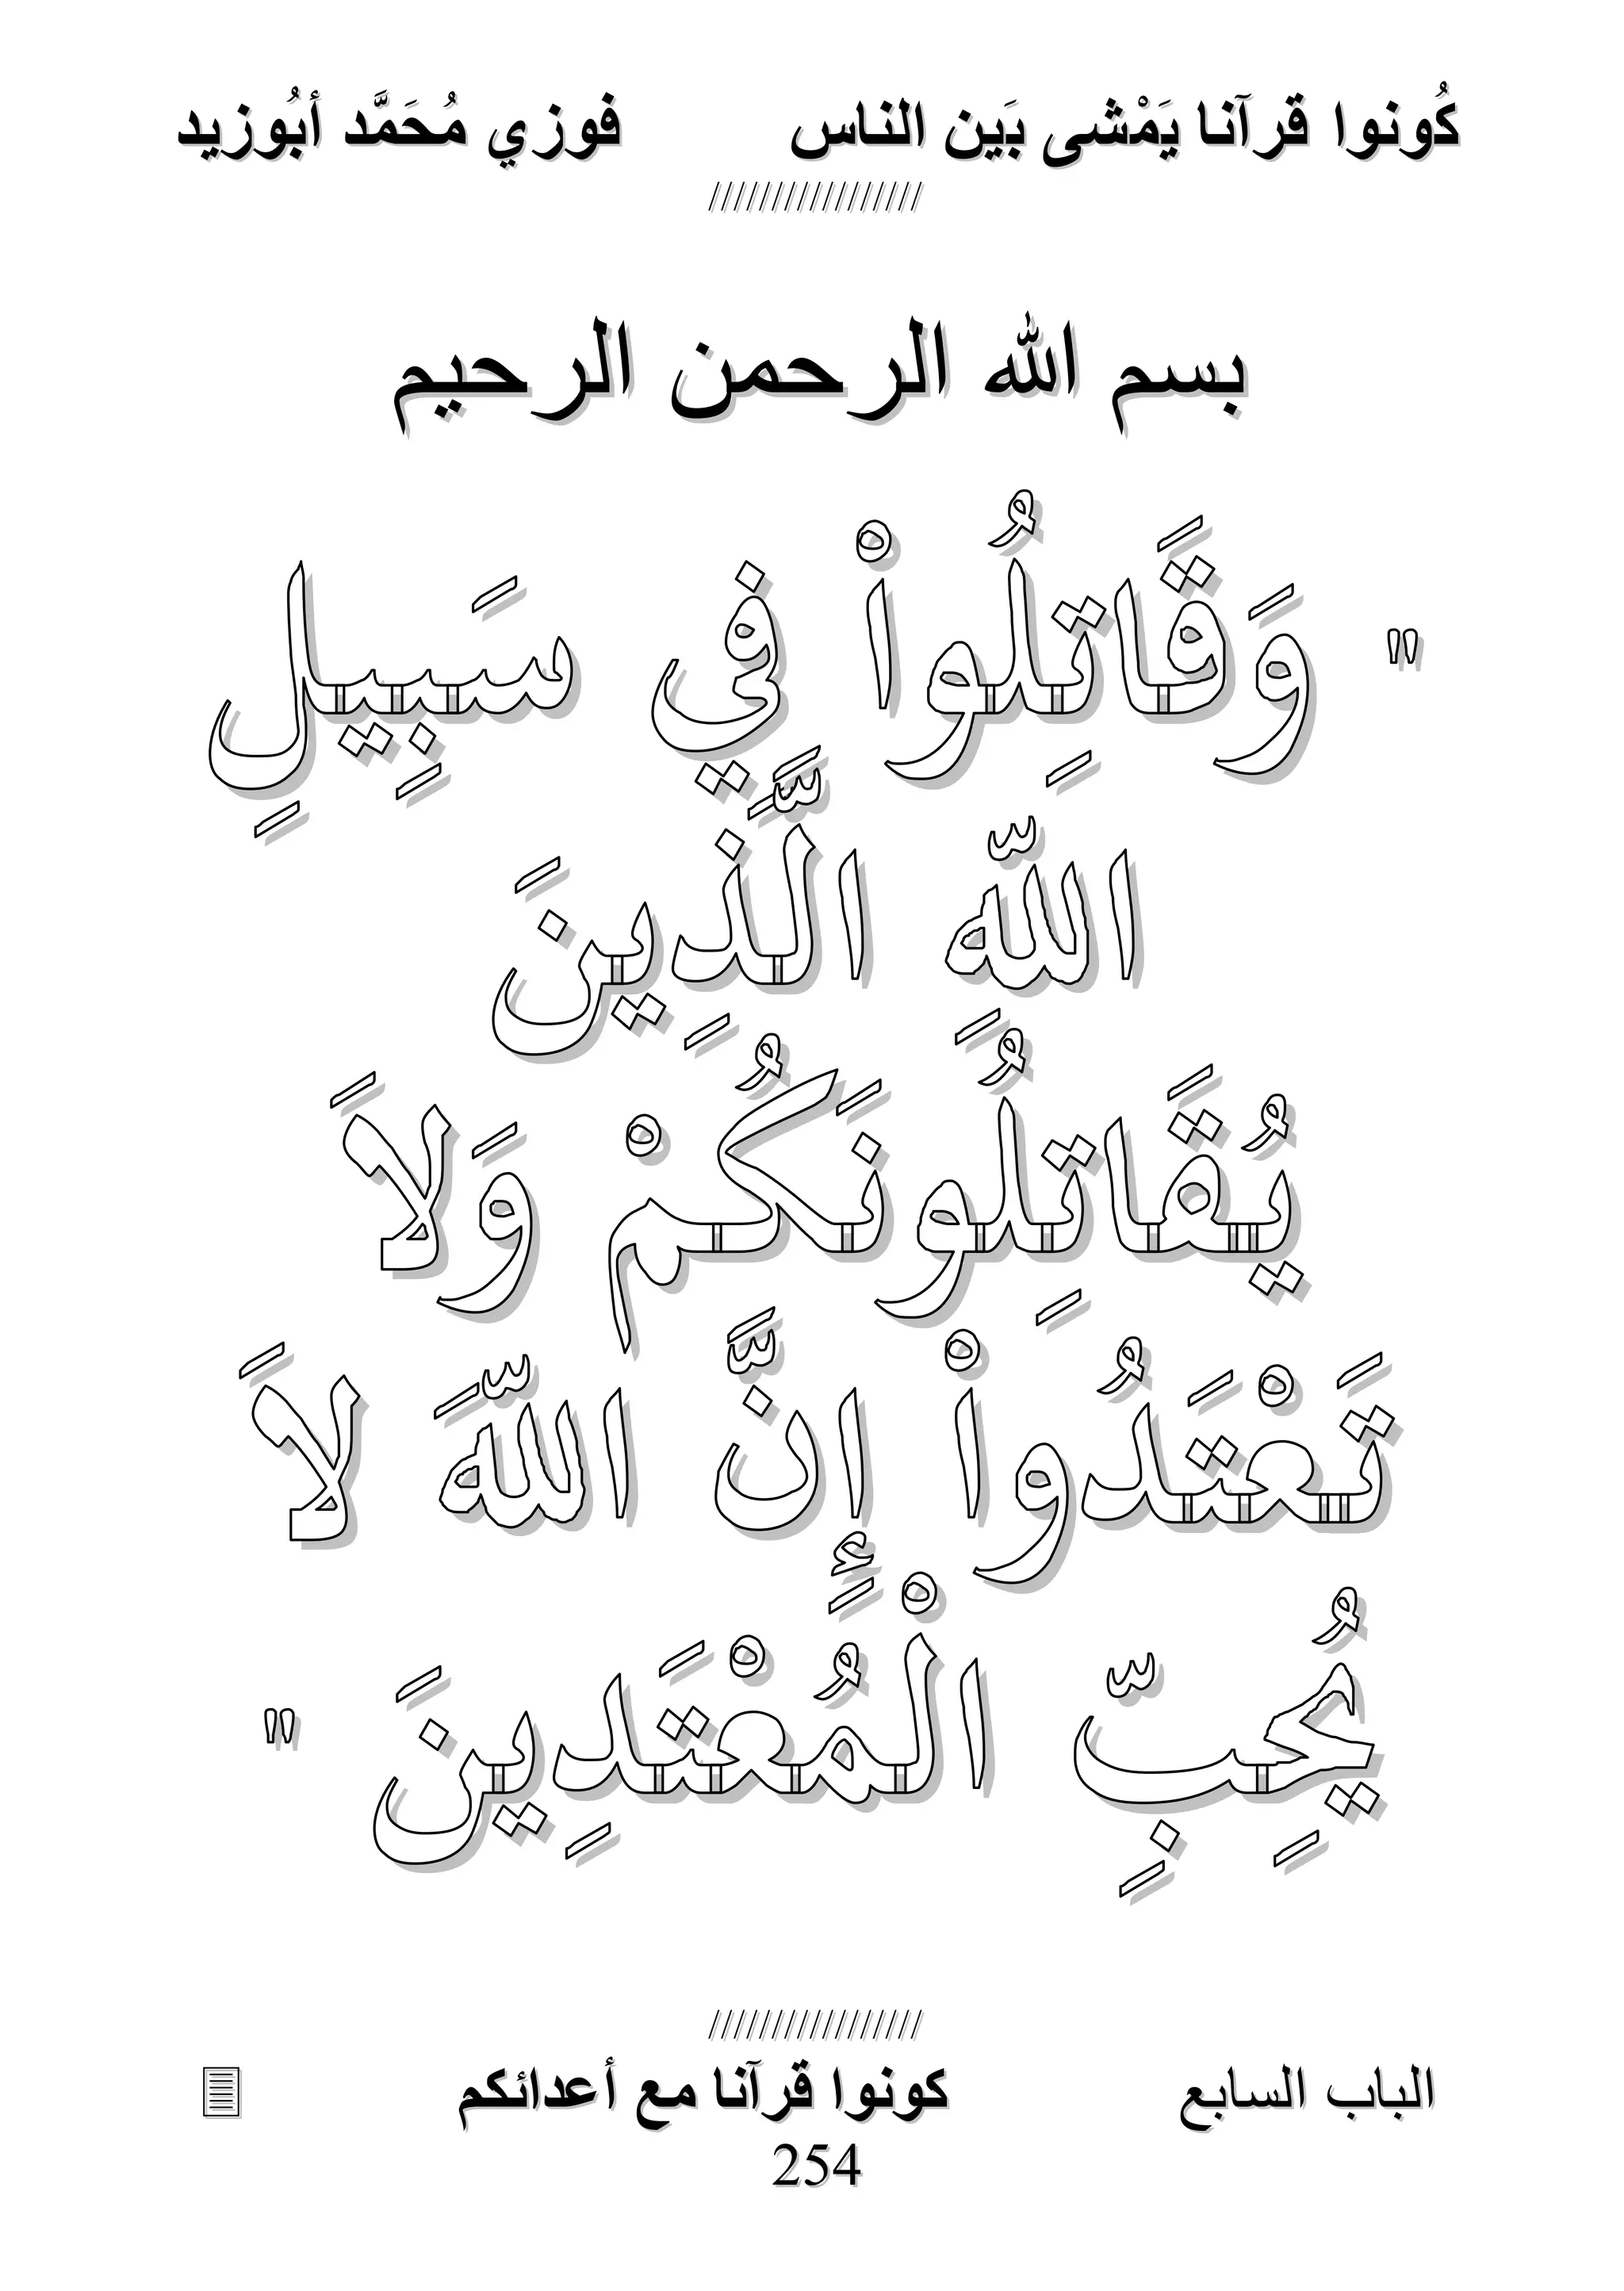 كُونوا قرآنا يَمْشى بَين الناس فوزي مُحَمَّد أبُوزيد
////////////////////
بسم الله الرحمن الرحيم
" وَقَاتِلُواْ فِي سَبِيلِ
اللّهِ الَّذِينَ
يُقَاتِلُونَكُمْ وَلاَ
تَعْتَدُواْ إِنَّ اللّهَ لاَ
يُحِبِّ الْمُعْتَدِينَ "
////////////////////
الباب السابع كونوا قرآنا مع أعدائكم
254